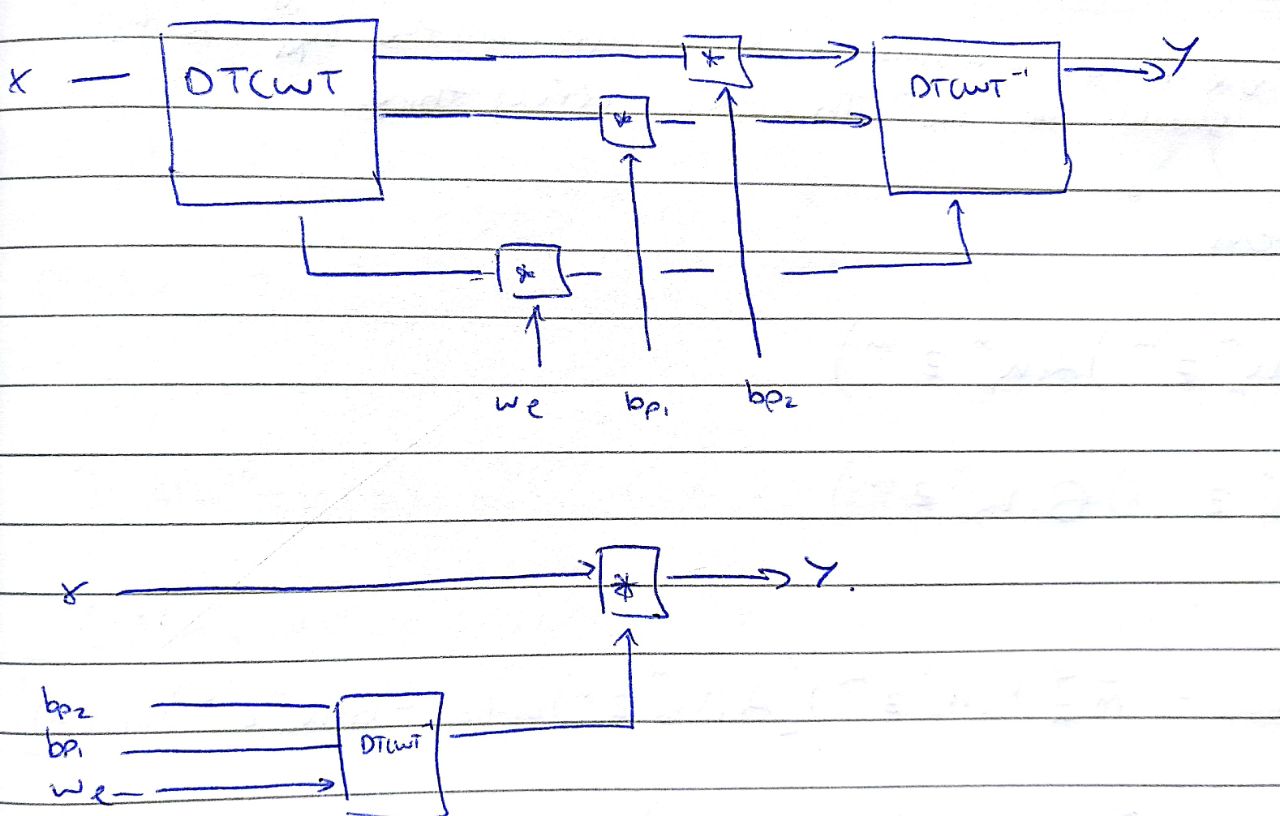 x DTCWT * DTCWT⁻¹ Y
*
*
we bp₁ bp₂
x * Y.
bp₂
bp₁ DTCWT⁻¹
we